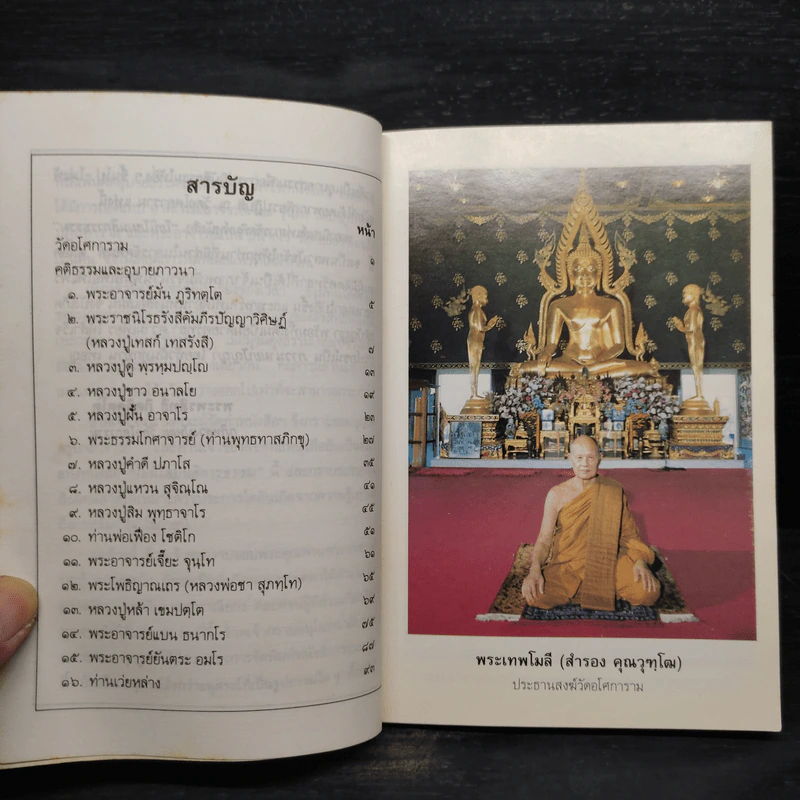 สารบัญ
หน้า
วัดอโศการาม ๑
คติธรรมและอุบายภาวนา
๑. พระอาจารย์มั่น ภูริทตฺโต ๕
๒. พระราชนิโรธรังสีคัมภีรปัญญาวิศิษฏ์
(หลวงปู่เทสก์ เทสรังสี) ๗
๓. หลวงปู่ดู่ พฺรหฺมปญฺโญ ๑๓
๔. หลวงปู่ขาว อนาลโย ๑๙
๕. หลวงปู่ฝั้น อาจาโร ๒๓
๖. พระธรรมโกศาจารย์ (ท่านพุทธทาสภิกขุ) ๒๗
๗. หลวงปู่คำดี ปภาโส ๓๕
๘. หลวงปู่แหวน สุจิณฺโณ ๔๑
๙. หลวงปู่สิม พุทฺธาจาโร ๔๕
๑๐. ท่านพ่อเฟื่อง โชติโก ๕๑
๑๑. พระอาจารย์เจี๊ยะ จุนฺโท ๖๑
๑๒. พระโพธิญาณเถร (หลวงพ่อชา สุภทฺโท) ๖๕
๑๓. หลวงปู่หล้า เขมปตฺโต ๖๙
๑๔. พระอาจารย์แบน ธนากโร ๗๕
๑๕. พระอาจารย์ยันตระ อมโร ๘๗
๑๖. ท่านเว่ยหล่าง ๙๓
พระเทพโมลี (สำรอง คุณวุฑฺโฒ)
ประธานสงฆ์วัดอโศการาม